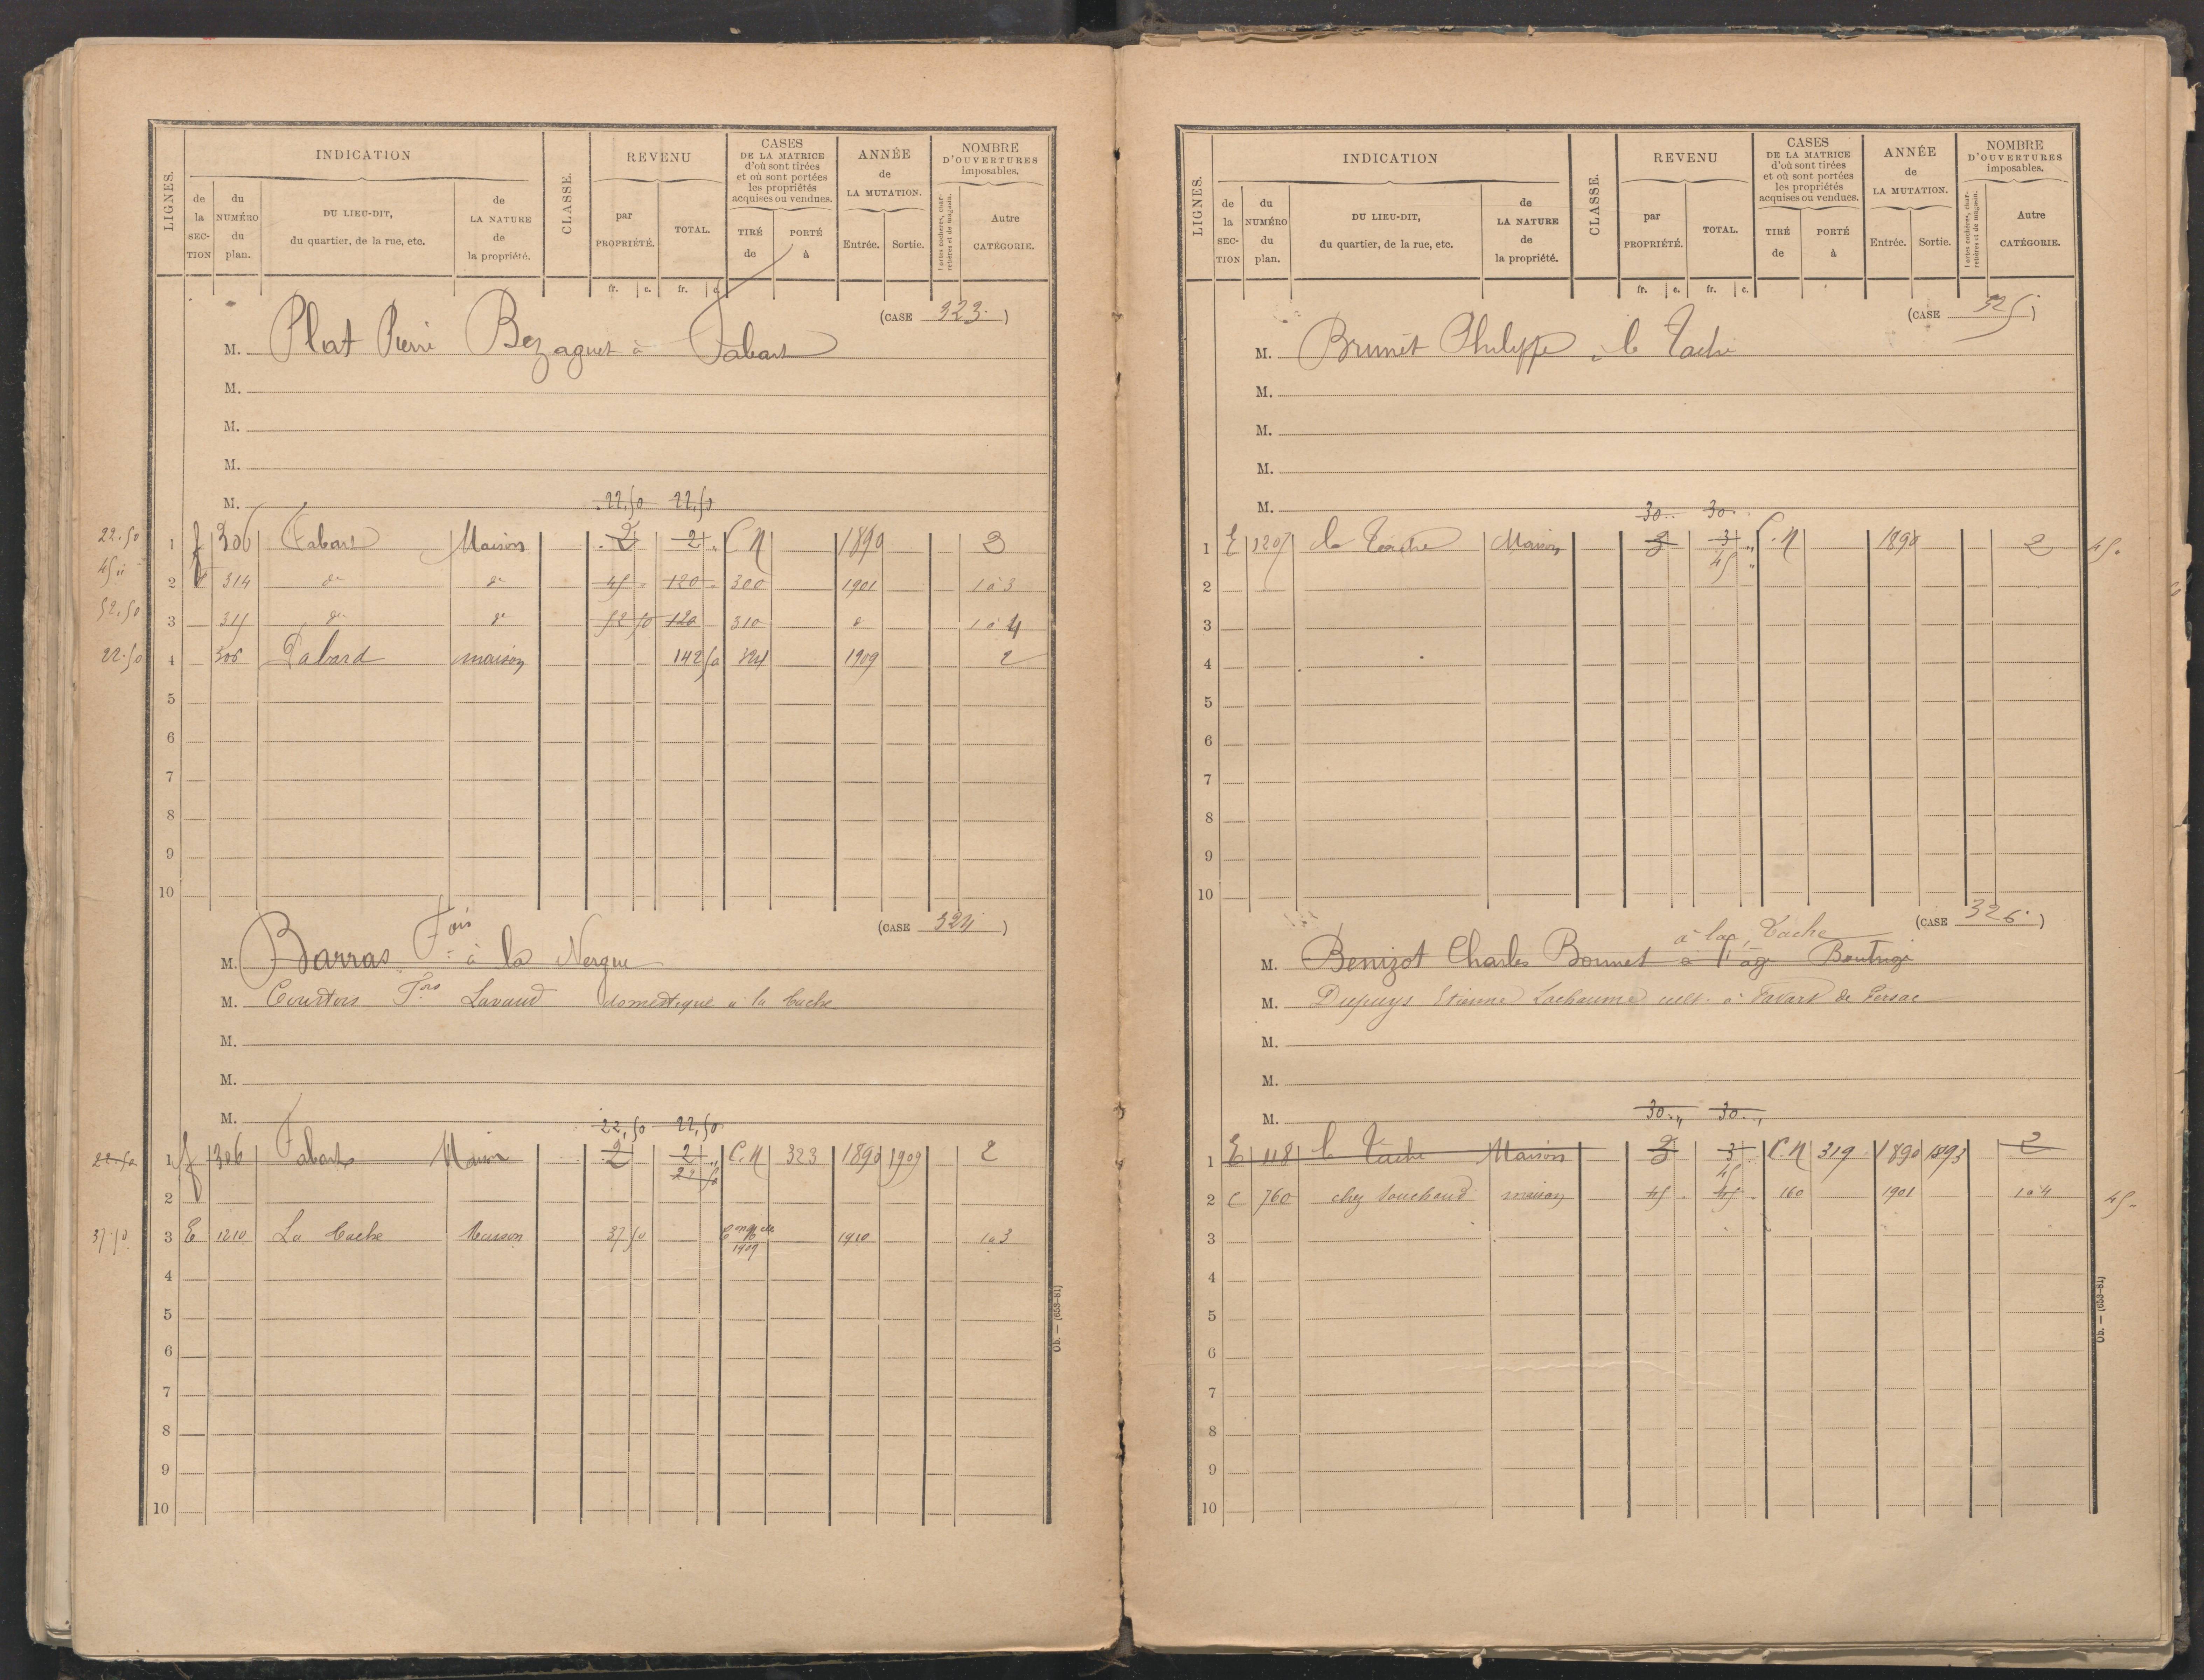 LIGNES. INDICATION CLASSE. REVENU CASES DE LA MATRICE d'où sont tirées et où sont portées les propriétés acquises ou vendues. ANNÉE de LA MUTATION. NOMBRE D'OUVERTURES imposables.
de la SECTION du NUMÉRO du plan. DU LIEU-DIT, du quartier, de la rue, etc. de LA NATURE de la propriété. par PROPRIÉTÉ. TOTAL. TIRÉ de PORTÉ à Entrée. Sortie. Portes cochères, charretières et de magasin. Autre CATÉGORIE.
fr. c. fr. c.
(CASE 323.)
M. Plat Pierre Bezaguet à Fabart
M.
M.
M.
M. 22,50 22,50
22.50 1 f 306 Fabart Maison 2 2 " C.N 1890 3
45 " 2 314 do do 45 120 300 1901 1 à 3
52.50 3 315 do do 52 50 120 310 do 1 à 4
22.50 4 306 Fabard maison 142 50 324 1909 2
5
6
7
8
9
10
(CASE 324)
M. Barras Fois à la Nergue
M. Courtois Fois Lavaud domestique à la Tache
M.
M.
M. 22,50 22,50
22.50 1 f 306 Fabart Maison 2 2 " C.N 323 1890 1909 2
22 50
2
37.50 3 E 1210 La Tache Maison 37 50 1909 1910 1 à 3
4
5
6
7
8
9
10
Ob. — (653-81)
LIGNES. INDICATION CLASSE. REVENU CASES DE LA MATRICE d'où sont tirées et où sont portées les propriétés acquises ou vendues. ANNÉE de LA MUTATION. NOMBRE D'OUVERTURES imposables.
de la SECTION du NUMÉRO du plan. DU LIEU-DIT, du quartier, de la rue, etc. de LA NATURE de la propriété. par PROPRIÉTÉ. TOTAL. TIRÉ de PORTÉ à Entrée. Sortie. Portes cochères, charretières et de magasin. Autre CATÉGORIE.
fr. c. fr. c.
(CASE 325)
M. Brunet Philippe à la Tache
M.
M.
M.
M. 30 30
1 E 1207 la Tache Maison 3 3 " C.N 1890 2 45
45 "
2
3
4
5
6
7
8
9
10
(CASE 326.)
à la Tache
M. Benizot Charles Bonnet à l'age Boutrigé
M. Dupuys Etienne Lachaume cult. à Favart de Persac
M.
M.
M. 30 " 30 "
1 E 118 la Tache Maison 3 3 C.N 319 1890 1893 2
45
2 C 760 chez Souchaud maison 45 45 160 1901 1 à 4 45 "
3
4
5
6
7
8
9
10
Ob. — (653-81)